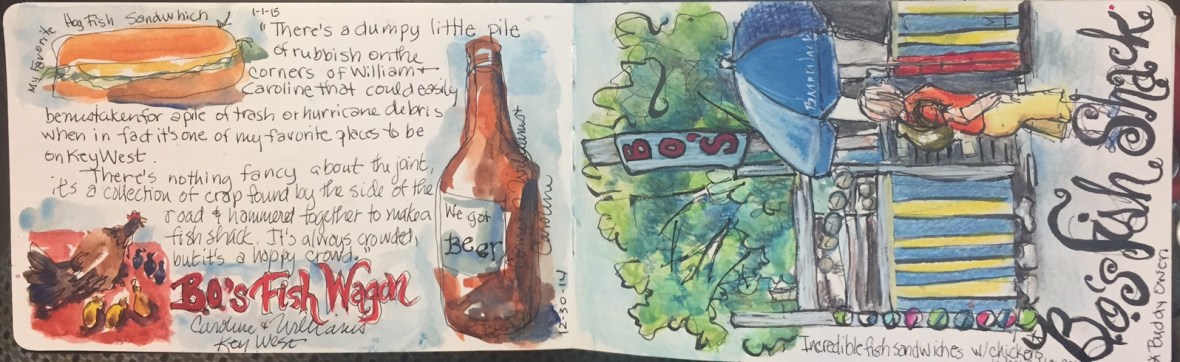 Hog Fish Sandwhich
My Favorite
1-1-15
"There's a dumpy little pile
of rubbish on the
corners of William +
Caroline that could easily
be mistaken for a pile of trash or hurricane debris
when in fact it's one of my favorite places to be
on Key West.
There's nothing fancy about the joint,
it's a collection of crap found by the side of the
road & hammered together to make a
fish shack. It's always crowded,
but it's a happy crowd."
B.O.'s Fish Wagon
Caroline & Williams
Key West
We got
Beer
Caroline
12-30-14
BO'S
Bo's Fish Shack
Buddy Owen
Incredible fish sandwiches w/chickens